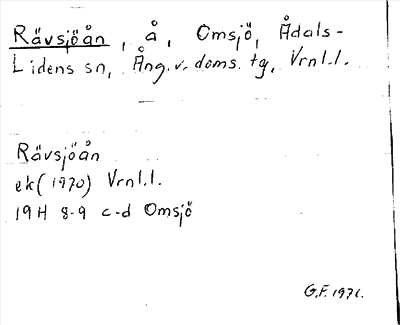 Rävsjöån, å, Omsjö, Ådals-
Lidens sn, Ång. v. doms. tg, Vrnl.l.
Rävsjöån
ek (1970) Vrnl.l.
19H 8-9 c-d Omsjö
G.F. 1971.